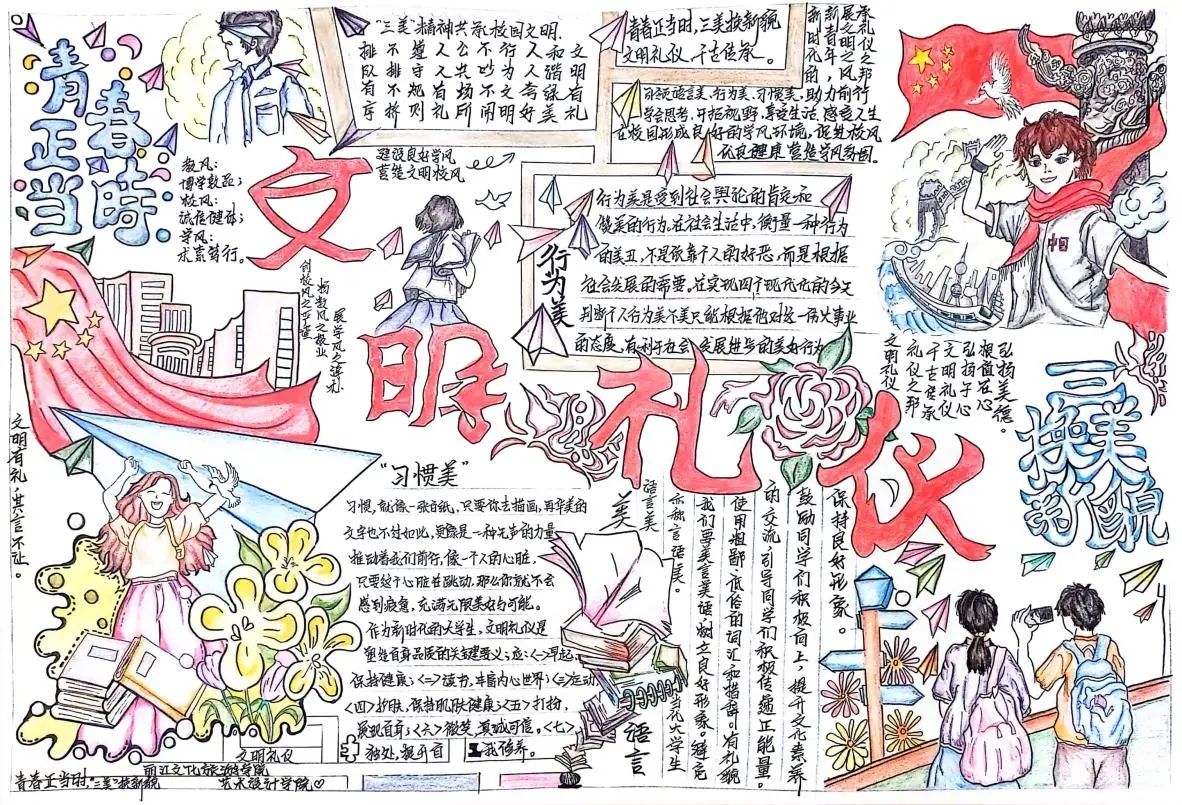 青春
正当時
教风：
博学敦品；
校风：
诚信健体；
学风：
求索笃行。
"三美"精神共筑校园文明
排不遵人公不行人和文
队排守人共吵为人谐明
有不规有场不文奇绿有
序挤则礼所闹明好美礼
建设良好学风
营造文明校风
青春正当时,三美换新貌
文明礼仪,千古传承。
新新展承
时青明礼
学会思考,开拓视野,享受生活,感受人生
在校园形成良好的学风环境,促进校风
优良健康营造学风氛围。
文明礼仪
行为美
行为美是受到社会舆论的肯定和
做美的行为。在社会生活中,衡量一种行为
的美丑,不是依靠个人的好恶,而是根据
社会发展的需要。在实现四个现代化的今天
判断个人行为美不美只能根据他对这一伟大事业
的态度。有利于社会发展进步的美好行为
中国
弘扬美德。
根植在心
弘扬于心
文明礼仪
千古传承
礼仪之邦
文明礼仪
三美
换新貌
文明有礼,其言不让。
"习惯美"
习惯,就像一张白纸,只要你去描画,再华美的
文字也不过如此,更像是一种无声的力量
推动着我们前行,像一个人的心脏,
只要这个心脏在跳动,那么你就不会
感到疲惫,充满无限美好与可能。
作为新时代的大学生,文明礼仪是
塑造自身品质的关键要义；应:<一>早起,
保持健康；<二>读书,丰富内心世界；<三>运动
<四>护肤,保持肌肤健康；<五>打扮,
展现自身；<六>微笑,真诚可信。<七>
独处,提升自我修养。
语言美
语言美
亦称言语美。
我们要美言美语,树立良好形象。避免
使用粗鄙、低俗的词汇和措辞。有礼貌
的交流,引导同学们积极传递正能量。
鼓励同学们积极向上,提升文化素养
保持良好形象。
当代大学生
语言
文明礼仪
丽江文化旅游学院
青春正当时,"三美"换新貌 艺术设计学院